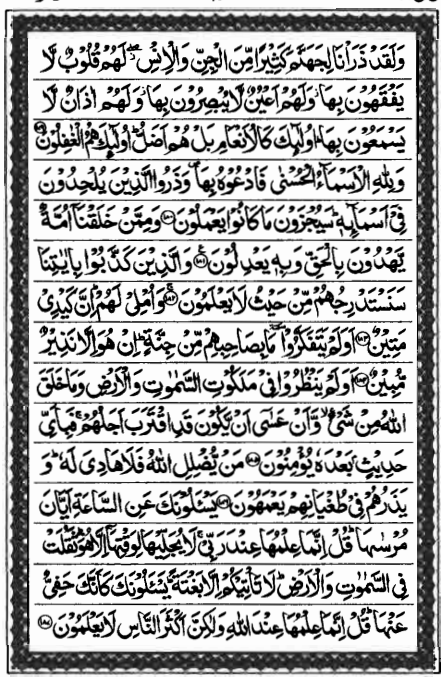 وَلَقَدْ ذَرَاْنَا لِجَهَنَّمَ كَثِيْرًا مِّنَ الْجِنِّ وَالْاِنْسِ ۖ لَهُمْ قُلُوْبٌ لَّا
يَفْقَهُوْنَ بِهَا ۫ وَلَهُمْ اَعْيُنٌ لَّا يُبْصِرُوْنَ بِهَا ۫ وَلَهُمْ اٰذَانٌ لَّا
يَسْمَعُوْنَ بِهَا ؕ اُولٰٓئِكَ كَالْاَنْعَامِ بَلْ هُمْ اَضَلُّ ؕ اُولٰٓئِكَ هُمُ الْغٰفِلُوْنَ ﴿۱۷۹﴾
وَلِلّٰهِ الْاَسْمَآءُ الْحُسْنٰى فَادْعُوْهُ بِهَا ۪ وَذَرُوا الَّذِيْنَ يُلْحِدُوْنَ
فِيْۤ اَسْمَآئِهٖ ؕ سَيُجْزَوْنَ مَا كَانُوْا يَعْمَلُوْنَ ﴿۱۸۰﴾ وَمِمَّنْ خَلَقْنَاۤ اُمَّةٌ
يَّهْدُوْنَ بِالْحَقِّ وَبِهٖ يَعْدِلُوْنَ ﴿۱۸۱﴾ وَالَّذِيْنَ كَذَّبُوْا بِاٰيٰتِنَا
سَنَسْتَدْرِجُهُمْ مِّنْ حَيْثُ لَا يَعْلَمُوْنَ ﴿۱۸۲﴾ وَاُمْلِيْ لَهُمْ ؕ اِنَّ كَيْدِيْ
مَتِيْنٌ ﴿۱۸۳﴾ اَوَلَمْ يَتَفَكَّرُوْا ٚ مَا بِصَاحِبِهِمْ مِّنْ جِنَّةٍ ؕ اِنْ هُوَ اِلَّا نَذِيْرٌ
مُّبِيْنٌ ﴿۱۸۴﴾ اَوَلَمْ يَنْظُرُوْا فِيْ مَلَكُوْتِ السَّمٰوٰتِ وَالْاَرْضِ وَمَا خَلَقَ
اللّٰهُ مِنْ شَيْءٍ ۙ وَّاَنْ عَسٰۤى اَنْ يَّكُوْنَ قَدِ اقْتَرَبَ اَجَلُهُمْ ۚ فَبِاَيِّ
حَدِيْثٍۭ بَعْدَهٗ يُؤْمِنُوْنَ ﴿۱۸۵﴾ مَنْ يُّضْلِلِ اللّٰهُ فَلَا هَادِيَ لَهٗ ؕ وَ
يَذَرُهُمْ فِيْ طُغْيَانِهِمْ يَعْمَهُوْنَ ﴿۱۸۶﴾ يَسْـَٔلُوْنَكَ عَنِ السَّاعَةِ اَيَّانَ
مُرْسٰىهَا ؕ قُلْ اِنَّمَا عِلْمُهَا عِنْدَ رَبِّيْ ۚ لَا يُجَلِّيْهَا لِوَقْتِهَاۤ اِلَّا هُوَ ؕ ثَقُلَتْ
فِي السَّمٰوٰتِ وَالْاَرْضِ ؕ لَا تَاْتِيْكُمْ اِلَّا بَغْتَةً ؕ يَسْـَٔلُوْنَكَ كَاَنَّكَ حَفِيٌّ
عَنْهَا ؕ قُلْ اِنَّمَا عِلْمُهَا عِنْدَ اللّٰهِ وَلٰكِنَّ اَكْثَرَ النَّاسِ لَا يَعْلَمُوْنَ ﴿۱۸۷﴾